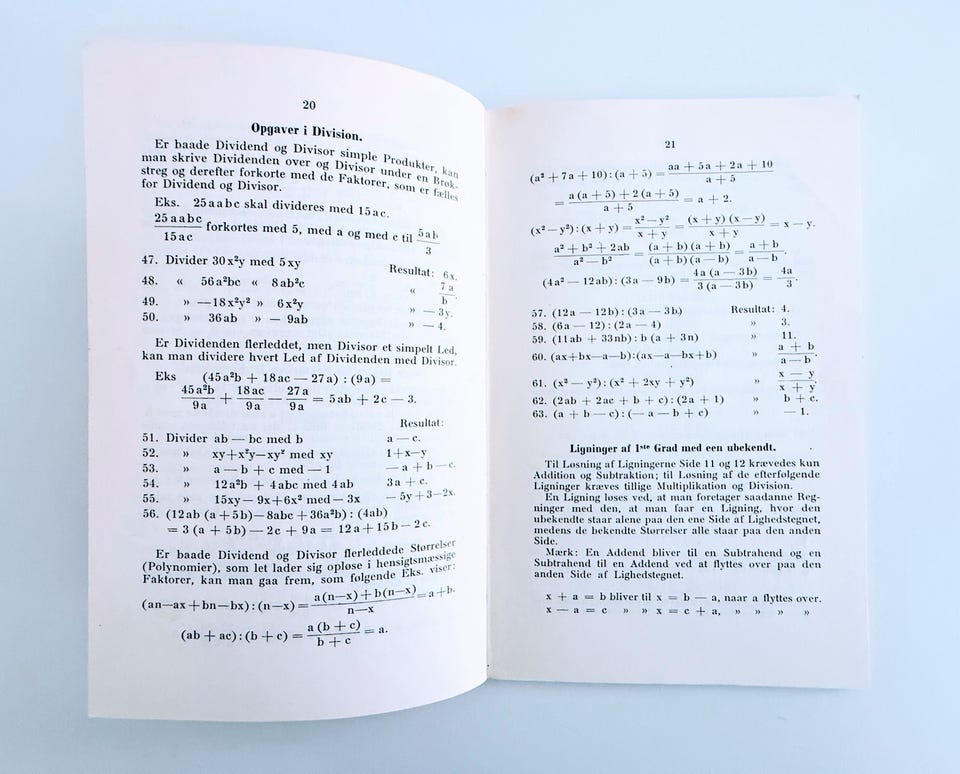 20
Opgaver i Division.
Er baade Dividend og Divisor simple Produkter, kan
man skrive Dividenden over og Divisor under en Brøk-
streg og derefter forkorte med de Faktorer, som er fælles
for Dividend og Divisor.
Eks. 25aabc skal divideres med 15ac.
25aabc/15ac forkortes med 5, med a og med c til 5ab/3
47. Divider 30x²y med 5xy Resultat: 6x.
48. « 56a²bc « 8ab²c « 7a/b.
49. » —18x²y² » 6x²y » — 3y.
50. » 36ab » — 9ab » — 4.
Er Dividenden flerleddet, men Divisor et simpelt Led,
kan man dividere hvert Led af Dividenden med Divisor.
Eks (45a²b + 18ac — 27a) : (9a) =
45a²b/9a + 18ac/9a — 27a/9a = 5ab + 2c — 3.
Resultat:
51. Divider ab — bc med b a — c.
52. » xy+x²y—xy² med xy 1+x—y
53. » a — b + c med — 1 — a + b — c.
54. » 12a²b + 4abc med 4ab 3a + c.
55. » 15xy — 9x+6x² med — 3x — 5y + 3 — 2x.
56. (12ab (a + 5b) — 8abc + 36a²b) : (4ab)
= 3 (a + 5b) — 2c + 9a = 12a + 15b — 2c.
Er baade Dividend og Divisor flerleddede Størrelser
(Polynomier), som let lader sig opløse i hensigtsmæssige
Faktorer, kan man gaa frem, som følgende Eks. viser:
(an—ax + bn—bx) : (n—x) = a(n—x) + b(n—x)/n—x = a+b.
(ab + ac) : (b + c) = a (b + c)/b + c = a.
21
(a² + 7a + 10) : (a + 5) = aa + 5a + 2a + 10/a + 5
= a (a + 5) + 2 (a + 5)/a + 5 = a + 2.
(x² — y²) : (x + y) = x² — y²/x + y = (x + y) (x — y)/x + y = x — y.
a² + b² + 2ab/a² — b² = (a + b) (a + b)/(a + b) (a — b) = a + b/a — b
(4a² — 12ab) : (3a — 9b) = 4a (a — 3b)/3 (a — 3b) = 4a/3.
57. (12a — 12b) : (3a — 3b) Resultat: 4.
58. (6a — 12) : (2a — 4) » 3.
59. (11ab + 33nb) : b (a + 3n) » 11.
60. (ax+bx—a—b):(ax—a—bx+b) » a + b/a — b
61. (x² — y²) : (x² + 2xy + y²) » x — y/x + y
62. (2ab + 2ac + b + c) : (2a + 1) » b + c.
63. (a + b — c) : (— a — b + c) » — 1.
Ligninger af 1ste Grad med een ubekendt.
Til Løsning af Ligningerne Side 11 og 12 krævedes kun
Addition og Subtraktion; til Løsning af de efterfølgende
Ligninger kræves tillige Multiplikation og Division.
En Ligning løses ved, at man foretager saadanne Reg-
ninger med den, at man faar en Ligning, hvor den
ubekendte staar alene paa den ene Side af Lighedstegnet,
medens de bekendte Størrelser alle staar paa den anden
Side.
Mærk: En Addend bliver til en Subtrahend og en
Subtrahend til en Addend ved at flyttes over paa den
anden Side af Lighedstegnet.
x + a = b bliver til x = b — a, naar a flyttes over.
x — a = c » » x = c + a, » » » »